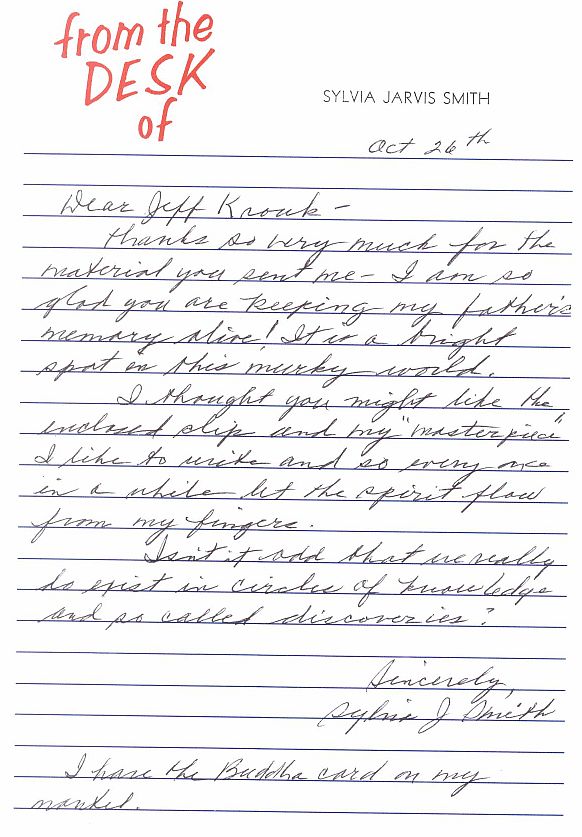 from the
DESK
of
SYLVIA JARVIS SMITH
Oct 26th
Dear Jeff Krouk -
thanks so very much for the
material you sent me - I am so
glad you are keeping my father's
memory alive! It is a bright
spot in this murky world.
I thought you might like the
enclosed clip and my "masterpiece"
I like to write and so every once
in a while let the spirit flow
from my fingers.
Isn't it odd that we really
do exist in circles of knowledge
and so called discoveries?
Sincerely,
Sylvia J Smith
I have the Buddha card on my
mantel.